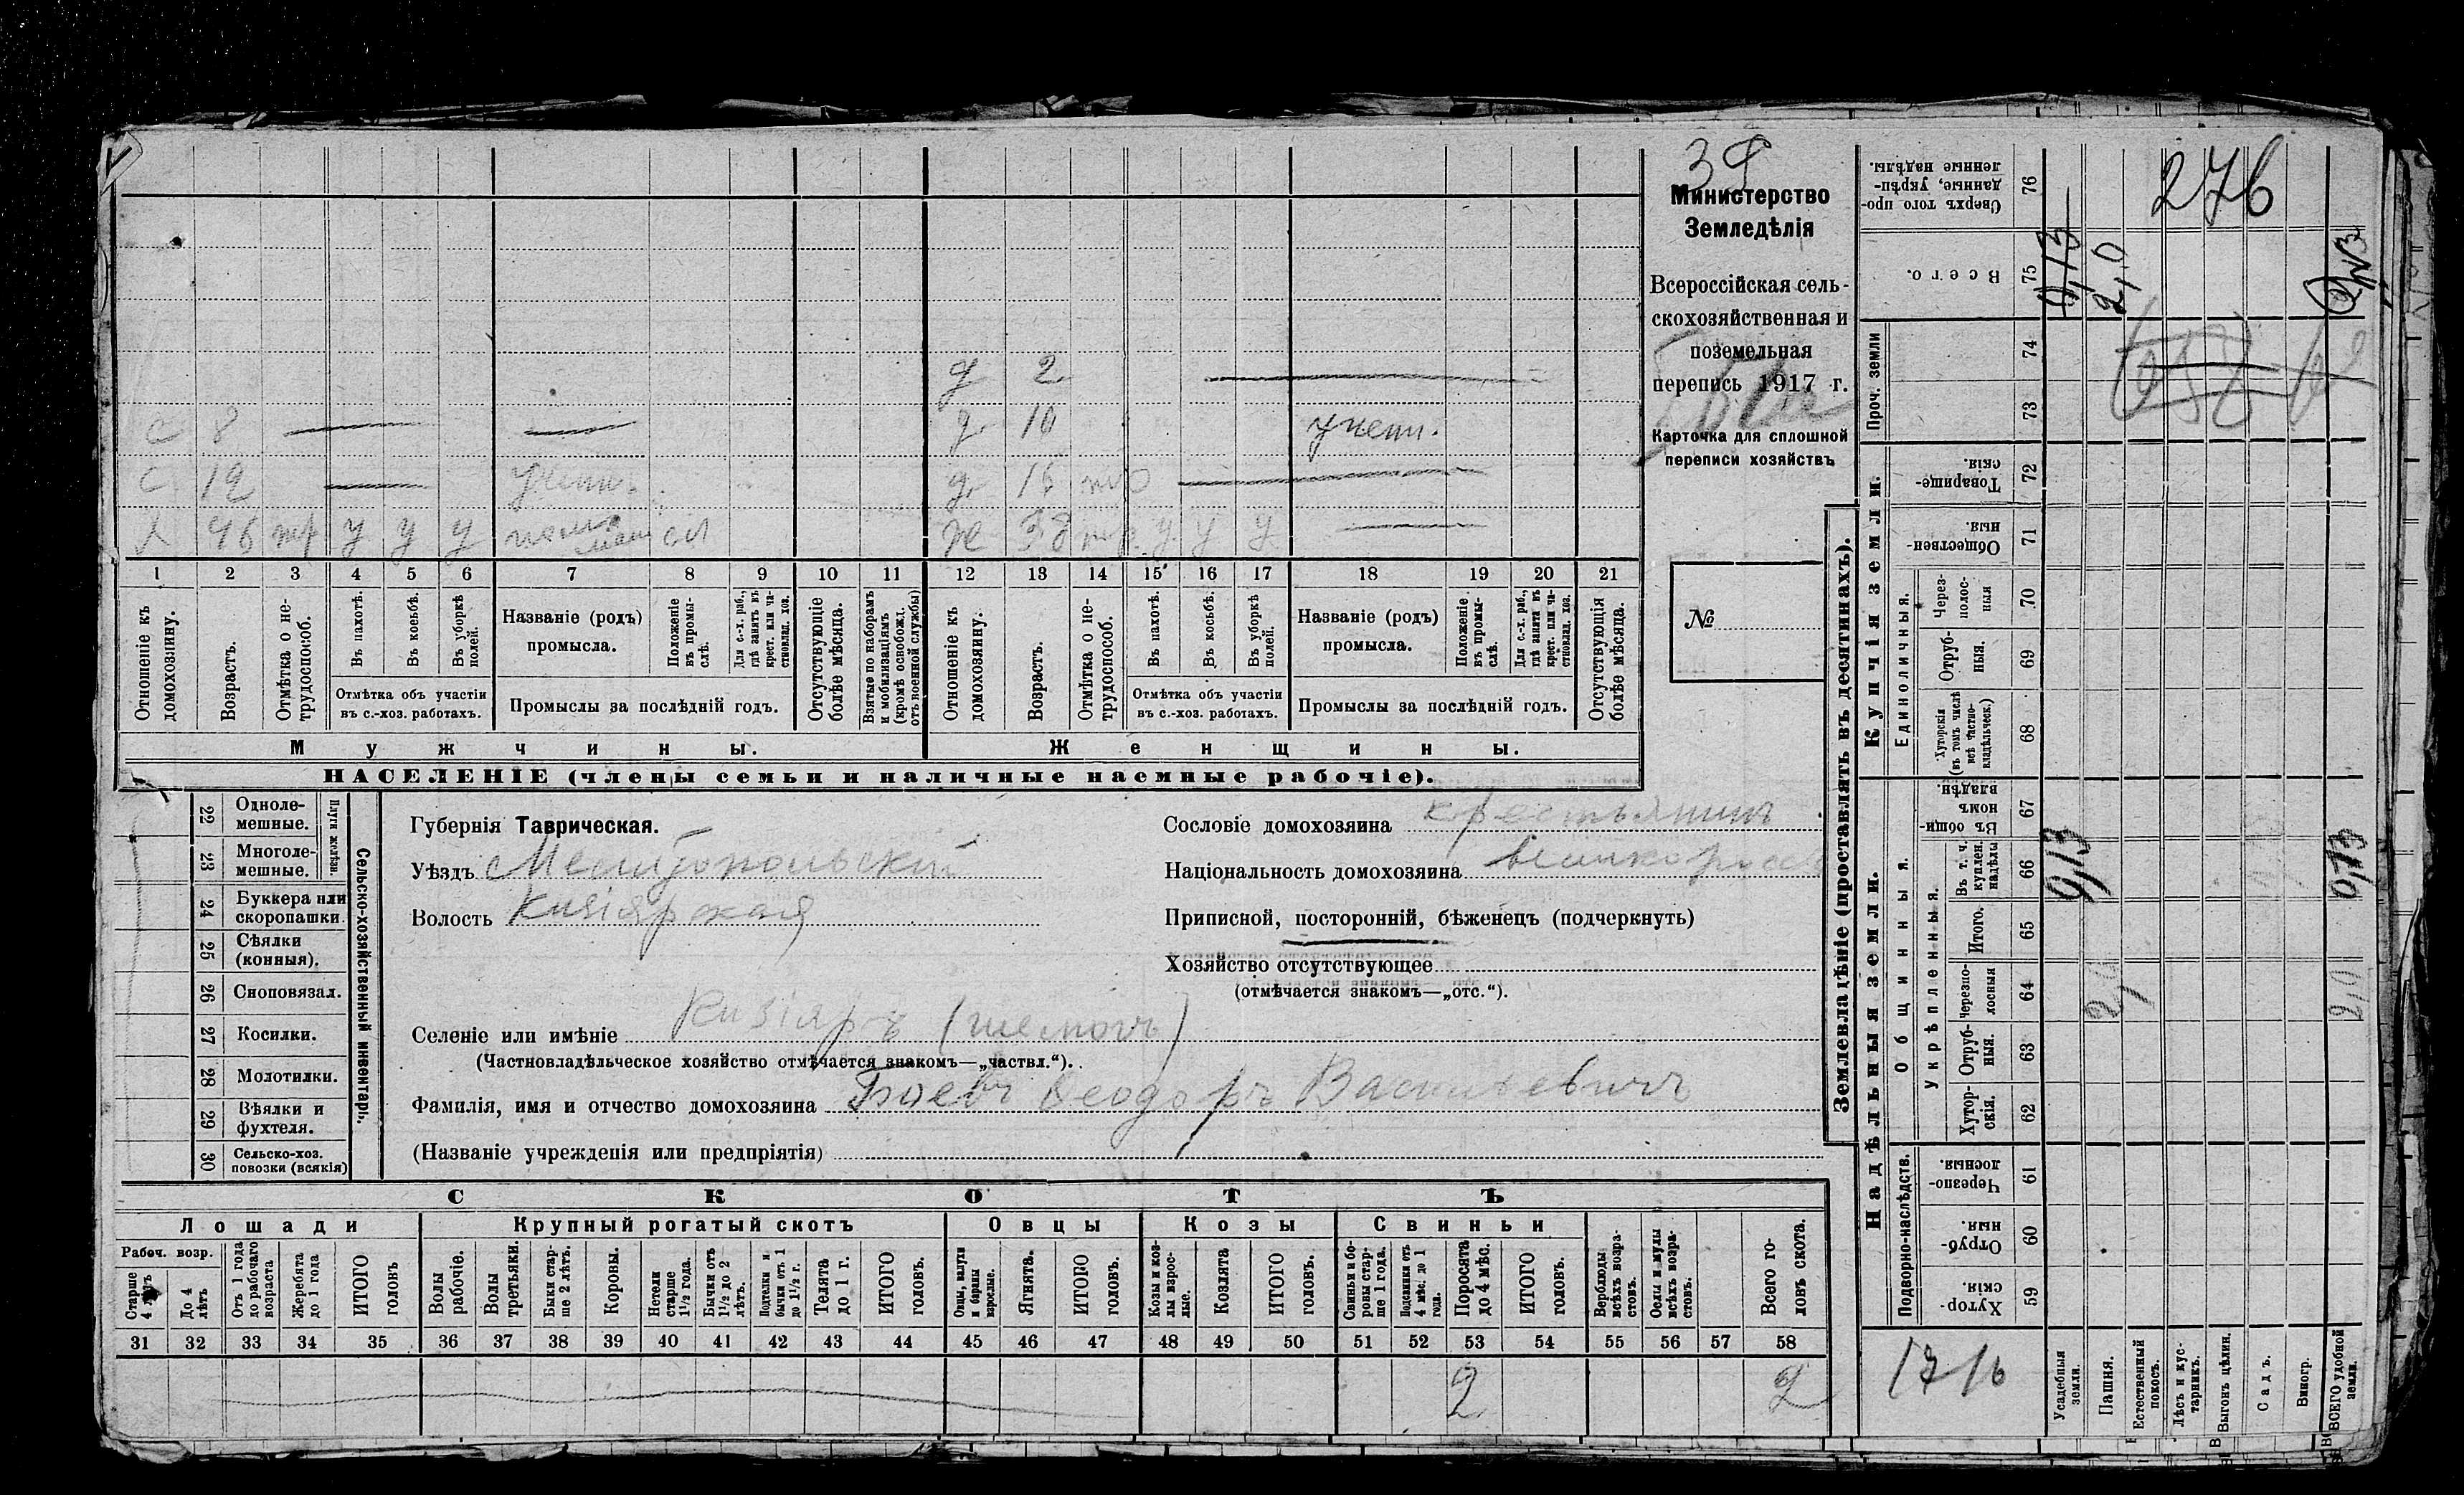 39
276
Министерство
Земледѣлія
Всероссійская сель-
скохозяйственная и
поземельная
перепись 1917 г.
Карточка для сплошной
переписи хозяйствъ
№
д 2
с 8 д 10 учени.
с 12 учени. д 16
х 46 нр у у у ж 38 нр. у у у
1 2 3 4 5 6 7 8 9 10 11 12 13 14 15 16 17 18 19 20 21
Отношеніе къ домохозяину.
Возрастъ.
Отмѣтка о не-трудоспособ.
Въ пахотѣ.
Въ косьбѣ.
Въ уборкѣ полей.
Отмѣтка объ участіи
въ с.-хоз. работахъ.
Названіе (родъ)
промысла.
Положеніе въ промы-слѣ.
Для с.-х. раб., гдѣ занятъ въ крест. или ча-стновлад. хоз.
Промыслы за послѣдній годъ.
Отсутствующіе болѣе мѣсяца.
Взятые по наборамъ и мобилизаціямъ (кромѣ освобожд. отъ военной службы)
Отношеніе къ домохозяину.
Возрастъ.
Отмѣтка о не-трудоспособ.
Въ пахотѣ.
Въ косьбѣ.
Въ уборкѣ полей.
Отмѣтка объ участіи
въ с.-хоз. работахъ.
Названіе (родъ)
промысла.
Положеніе въ промы-слѣ.
Для с.-х. раб., гдѣ заняти въ крест. или ча-стновлад. хоз.
Промыслы за послѣдній годъ.
Отсутствующія болѣе мѣсяца.
Мужчины.
Женщины.
НАСЕЛЕНІЕ (члены семьи и наличные наемные рабочіе).
22 Одноле-мешные.
23 Многоле-мешные.
Плуги желѣзн.
24 Буккера или скоропашки.
25 Сѣялки (конныя).
26 Сноповязал.
27 Косилки.
28 Молотилки.
29 Вѣялки и фухтеля.
30 Сельско-хоз. повозки (всякія)
Сельско-хозяйственный инвентарь.
Губернія Таврическая.
Уѣздъ Мелитопольскій
Волость Кизіярская
Сословіе домохозяина крестьянинъ
Національность домохозяина великоросс
Приписной, посторонній, бѣженецъ (подчеркнуть)
Хозяйство отсутствующее
(отмѣчается знакомъ—„отс.“).
Селеніе или имѣніе Кизіяръ
(Частновладѣльческое хозяйство отмѣчается знакомъ—„частвл.“).
Фамилія, имя и отчество домохозяина Боевъ Ѳеодоръ Васильевичъ
(Названіе учрежденія или предпріятія)
СКОТЪ
Лошади
Крупный рогатый скотъ
Овцы
Козы
Свиньи
Рабоч. возр.
Старше 4 лѣтъ
До 4 лѣтъ
Отъ 1 года до рабочаго возраста
Жеребята до 1 года
ИТОГО головъ
Волы рабочіе.
Волы третьяки.
Быки стар-ше 2 лѣтъ.
Коровы.
Нетели старше 1½ года.
Бычки отъ 1½ до 2 лѣтъ.
Подтелки и бычки отъ 1 до 1½ г.
Телята до 1 г.
ИТОГО головъ.
Овцы, валухи и бараны взрослые.
Ягнята.
ИТОГО головъ.
Козы и коз-лы взрос-лые.
Козлята
ИТОГО головъ.
Свиньи и бо-ровы стар-ше 1 года.
Подсвинки отъ 4 мѣс. до 1 года.
Поросята до 4 мѣс.
ИТОГО головъ.
Верблюды всѣхъ возра-стовъ.
Ослы и мулы всѣхъ возра-стовъ.
Всего го-ловъ скота.
31 32 33 34 35 36 37 38 39 40 41 42 43 44 45 46 47 48 49 50 51 52 53 54 55 56 57 58
2 2
Землевладѣніе (проставлять въ десятинахъ).
Купчія земли.
Надѣльныя земли.
Проч. земли
Сверхъ того про-данные, укрѣп-ленные надѣлы. 76
Всего. 75 9,13 2,0
74
73
Товарище-скія. 72
Обществен-ныя. 71
Единоличныя.
Через-полос-ныя 70
Отруб-ныя. 69
Хуторскія (въ томъ числѣ всѣ частно-владѣльческ.) 68
Общинныя.
Укрѣпленныя.
Въ общин-номъ владѣн. 67
Въ т. ч. куплен. надѣлы 66 9,13
Итого. 65
Черезпо-лосныя 64 2,0
Отруб-ныя. 63
Хутор-скія. 62
Подворно-наслѣдств.
Черезпо-лосныя. 61
Отруб-ныя. 60
Хутор-скія. 59
1716
Усадебныя земли.
Пашня.
Естественный покосъ.
Лѣсъ и кус-тарникъ.
Выгонъ цѣлин.
Садъ.
Виногр.
ВСЕГО удобной земли.
2,0